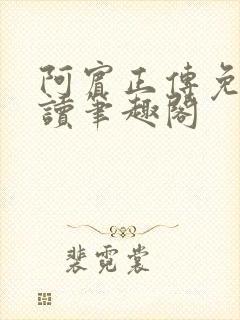 阿賓正傳免
讀筆趣閣
裴霓裳